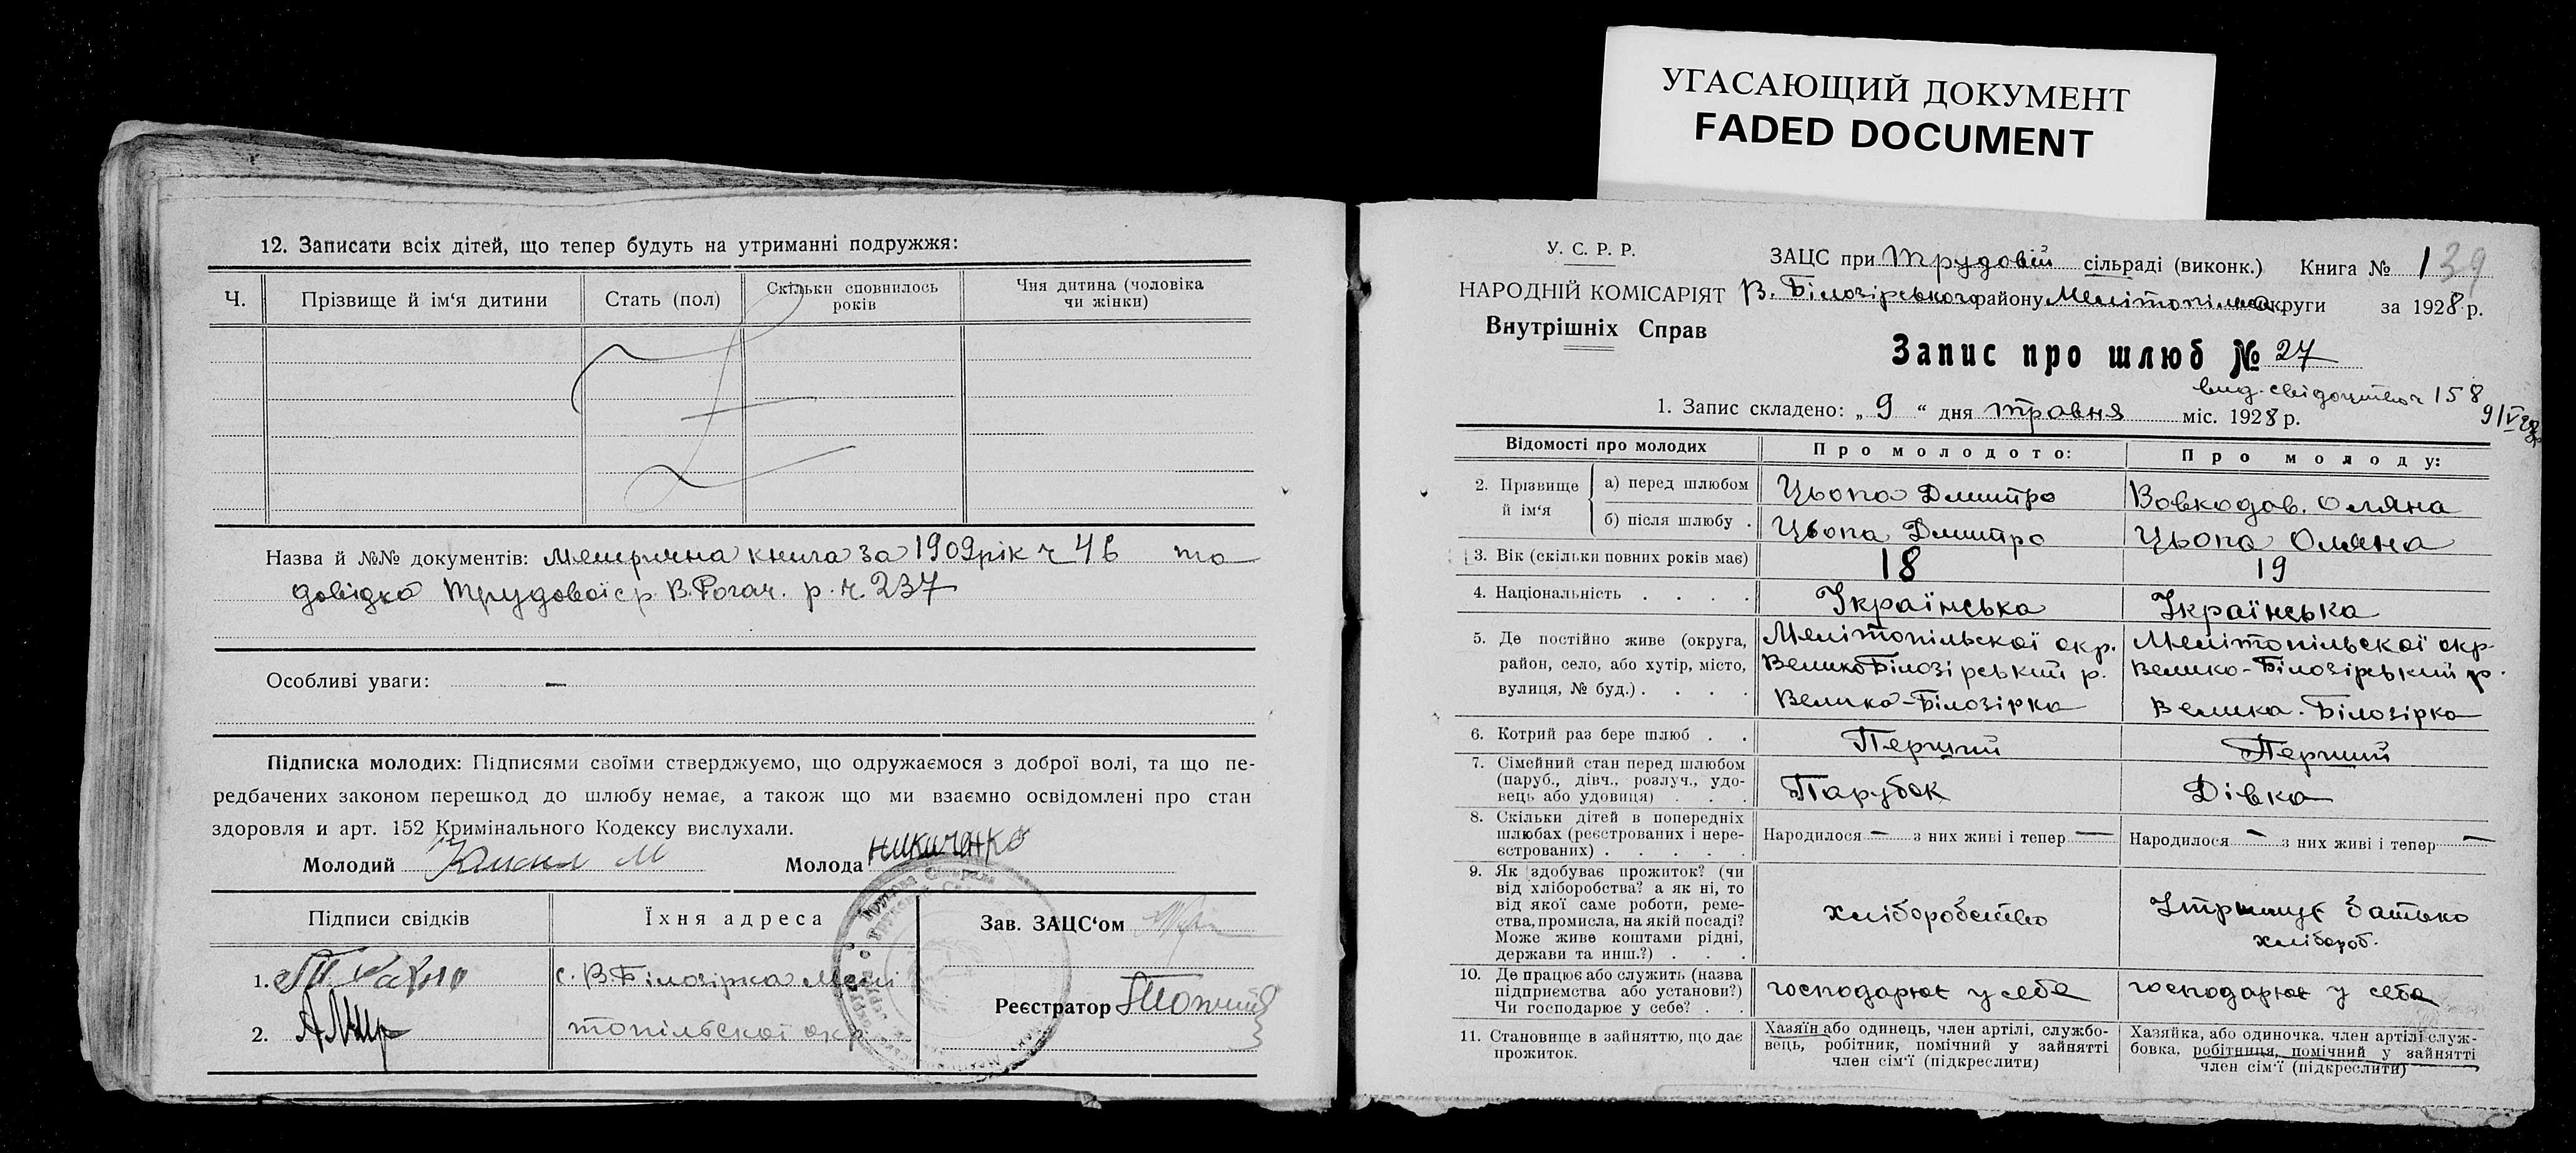 УГАСАЮЩИЙ ДОКУМЕНТ
FADED DOCUMENT
12. Записати всіх дітей, що тепер будуть на утриманні подружжя:
Ч. Прізвище й ім‘я дитини Стать (пол) Скільки сповнилось років Чия дитина (чоловіка чи жінки)
Назва й №№ документів: метрична книга за 1909 рік ч 46 та
довідка Трудової с.р. В.Рогач. р. ч. 237
Особливі уваги: —
Підписка молодих: Підписями своїми стверджуємо, що одружаємося з доброї волі, та що пе-
редбачених законом перешкод до шлюбу немає, а також що ми взаємно освідомлені про стан
здоровля и арт. 152 Кримінального Кодексу вислухали.
Молодий Молода Никиченко
Підписи свідків Їхня адреса Зав. ЗАЦС‘ом
1. с. В. Білозірка Мелі
Реєстратор
2. топільської окр
У. С. Р. Р.
НАРОДНІЙ КОМІСАРІЯТ
Внутрішніх Справ
ЗАЦС при Трудовій сільраді (виконк.) Книга № 1 39
В. Білозірського району Мелітопільсько округи за 1928 р.
Запис про шлюб № 27
вид. свідоцтво ч 158
9/V 28р
1. Запис складено: „ 9 “ дня травня міс. 1928 р.
Відомості про молодих Про молодого: Про молоду:
2. Прізвище й ім‘я
а) перед шлюбом Цьопа Дмитро Вовкодав. Оляна
б) після шлюбу . Цьопа Дмитро Цьопа Оляна
3. Вік (скільки повних років має) 18 19
4. Національність . . . . Українська Українська
5. Де постійно живе (округа, Мелітопільскої окр. Мелітопільскої окр
район, село, або хутір, місто, Велико Білозірський р. Велико-Білозірський р.
вулиця, № буд.) . . . . Велика-Білозірка Велика-Білозірка
6. Котрий раз бере шлюб . . Перший Перший
7. Сімейний стан перед шлюбом
(паруб., дівч., розлуч., удо-
вець або удовиця) . . . Парубок Дівка
8. Скільки дітей в попередніх
шлюбах (реєстрованих і нере- Народилося — з них живі і тепер — Народилося — з них живі і тепер —
єстрованих) . . . . .
9. Як здобуває прожиток? (чи
від хліборобства? а як ні, то
від якої саме роботи, реме-
ства, промисла, на якій посаді? хліборобство Утримує батько
Може живе коштами рідні, хлібороб.
держави та инш.?) . . .
10. Де працює або служить (назва
підприємства або установи?) господарює у себе господарює у себе
Чи господарює у себе? . .
11. Становище в зайняттю, що дає
прожиток.
Хазяїн або одинець, член артілі, службо-
вець, робітник, помічний у зайнятті
член сім‘ї (підкреслити)
Хазяйка, або одиночка, член артілі служ-
бовка, робітниця, помічний у зайнятті
член сім‘ї (підкреслити)